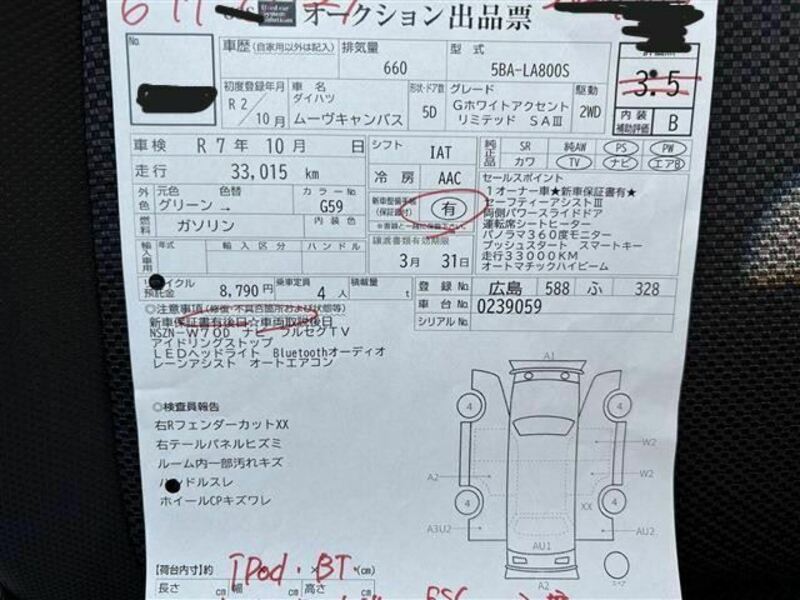 Used car System Solutions
オークション出品票
No.
車歴(自家用以外は記入)
排気量 660
型式 5BA-LA800S
3.5
初度登録年月 R 2/10月
車名 ダイハツ ムーヴキャンバス
形状・ドア数 5D
グレード Gホワイトアクセント リミテッド SAⅢ
駆動 2WD
内装補助評価 B
車検 R 7年 10月 日
シフト IAT
純正品 SR 純AW PS PW
カワ TV ナビ エアB
走行 33,015 km
冷房 AAC
外色 元色 グリーン → 色替 カラーNo. G59
新車整備手帳(保証書付) 有
※書類と一緒に保管下さい。
燃料 ガソリン 内装色
輸入車用 年式 輸入区分 ハンドル
譲渡書類有効期限
3月 31日
セールスポイント
1オーナー車★新車保証書有★
セーフティーアシストⅢ
両側パワースライドドア
運転席シートヒーター
パノラマ360度モニター
プッシュスタート スマートキー
走行33000KM
オートマチックハイビーム
預託金 8,790円 乗車定員 4人 積載量 t
登録No. 広島 588 ふ 328
車台No. 0239059
シリアルNo.
◎注意事項(修復・不具合箇所および状態等)
新車保証書有後日☆車両取説後日
NSZN-W70D ナビ フルセグTV
アイドリングストップ
LEDヘッドライト Bluetoothオーディオ
レーンアシスト オートエアコン
◎検査員報告
右RフェンダーカットXX
右テールパネルヒズミ
ルーム内一部汚れキズ
ハンドルスレ
ホイールCPキズワレ
A1
4
4
W2
A2
W2
4
4
XX
A3U2
AU1
AU2
A2
スペア
【荷台内寸】約 (cm)
iPod・BT
長さ cm 幅 cm 高さ cm